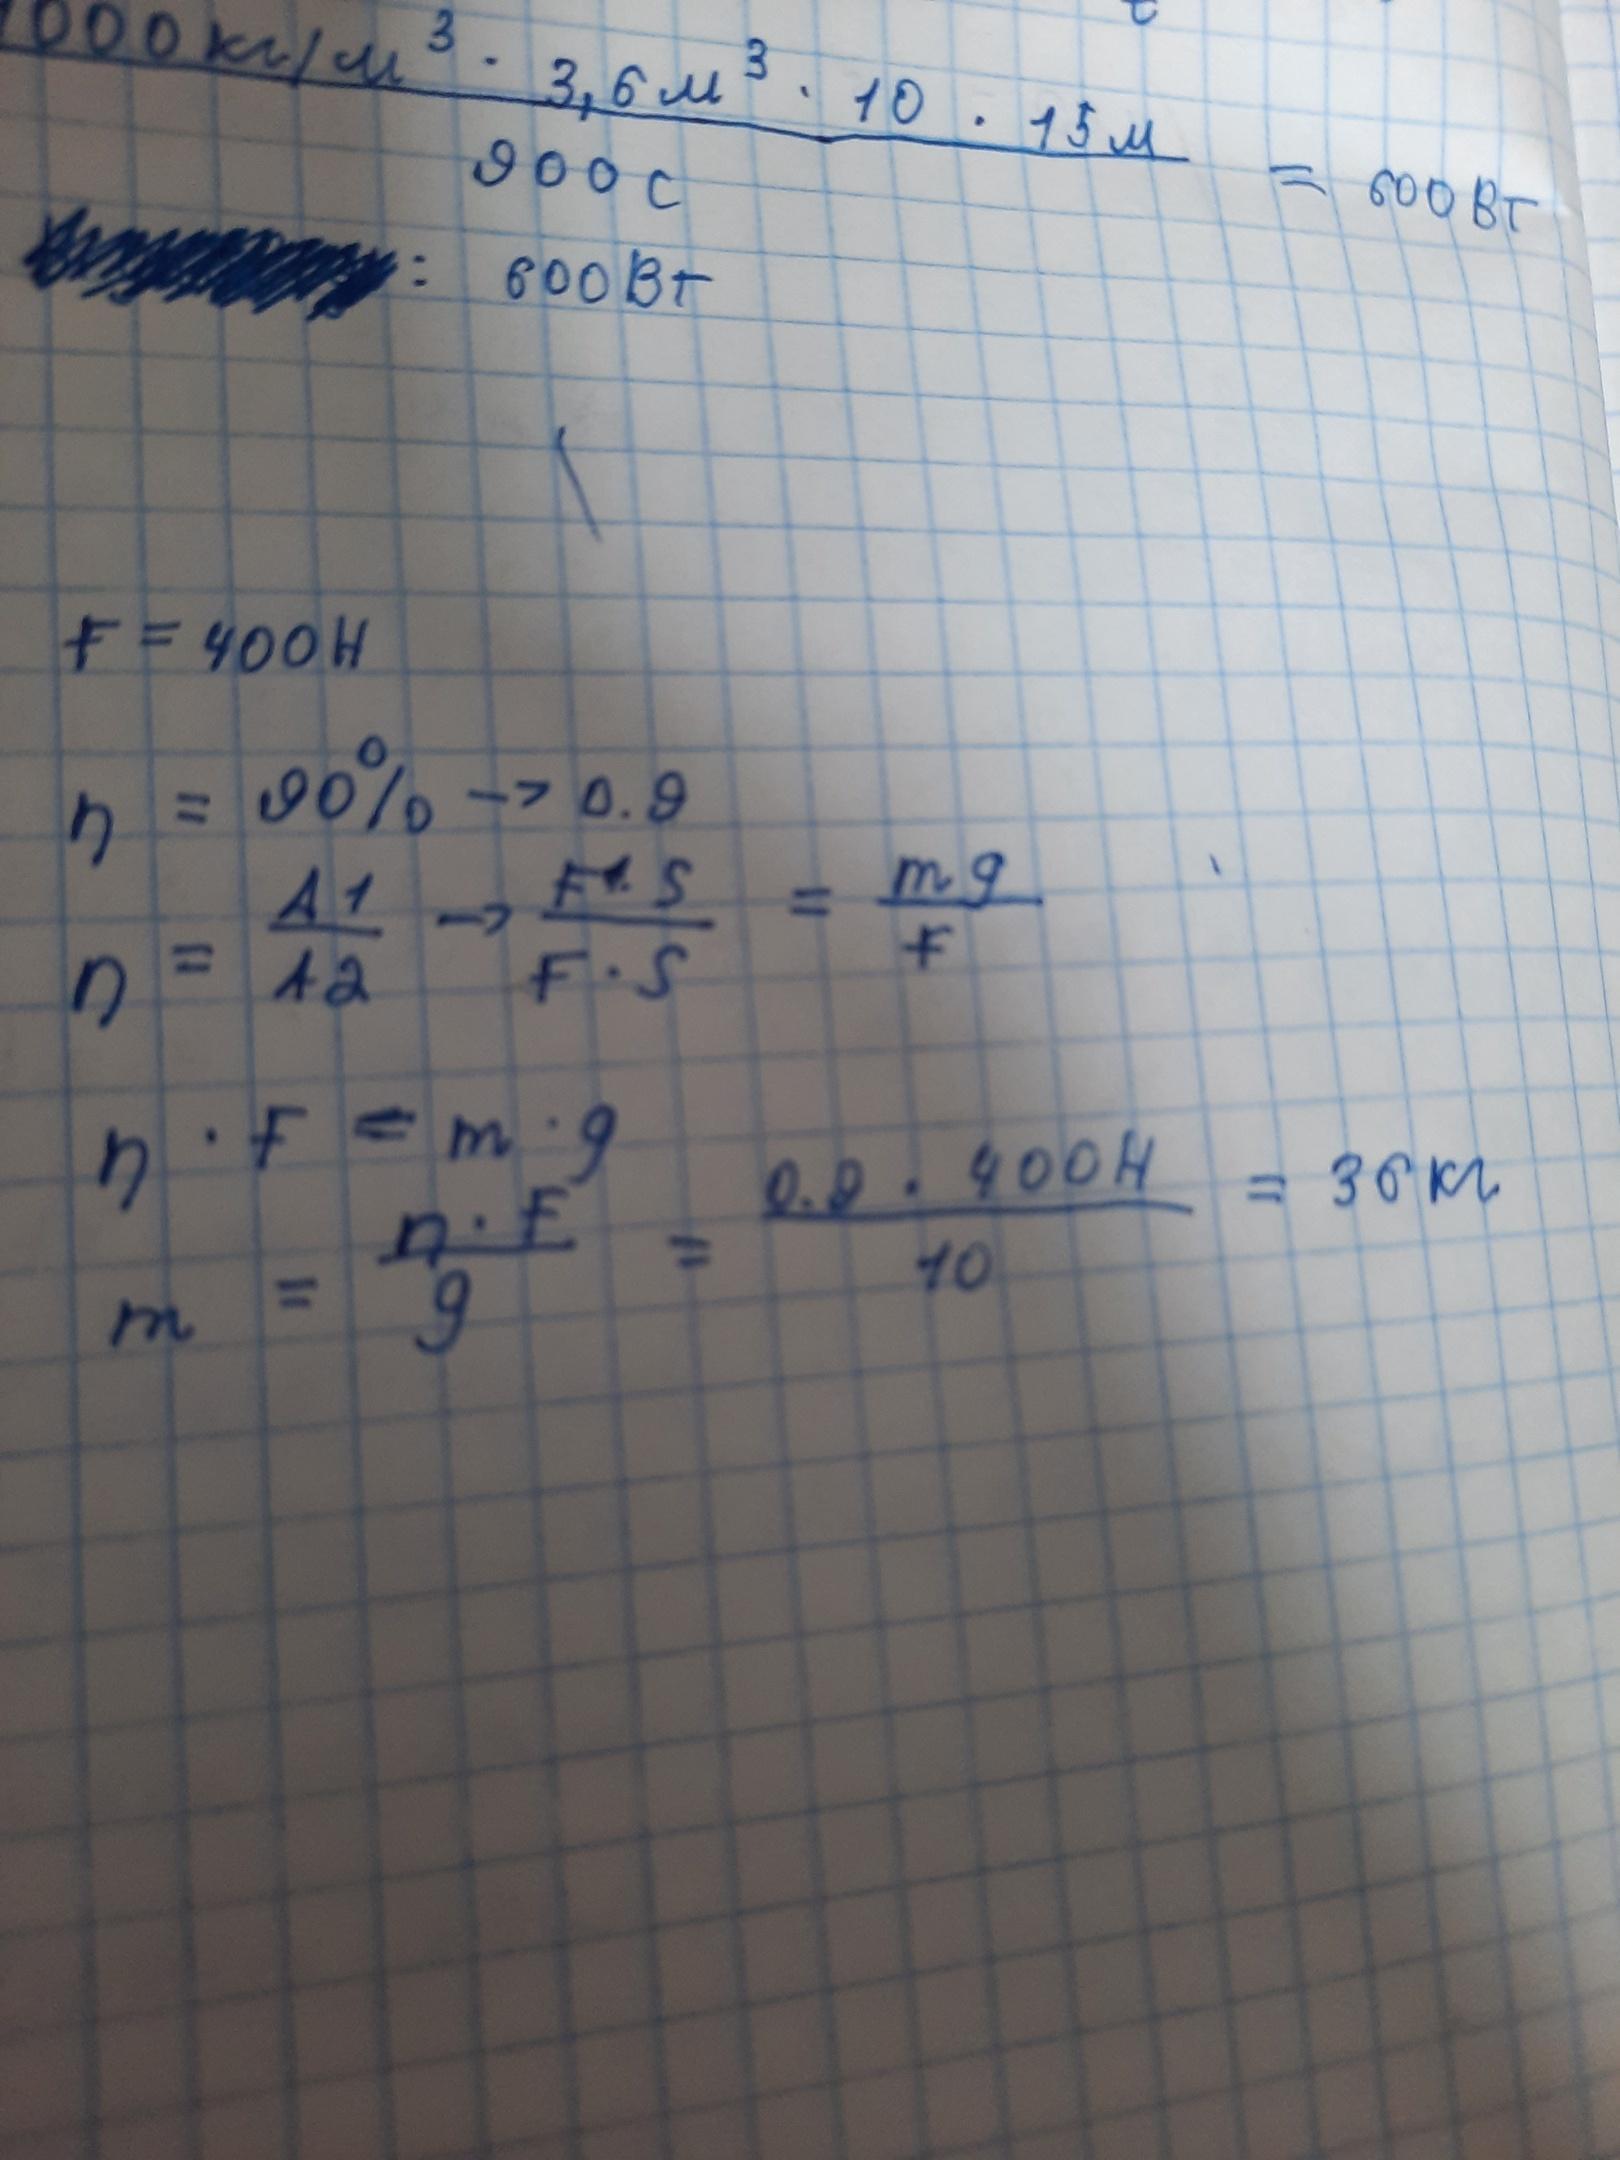 1000 кг/м³ · 3,6 м³ · 10 · 15 м
900 с
= 600 Вт
: 600 Вт
F = 400 Н
η = 90% -> 0.9
η = A1/A2 -> F1·S/F·S = mg/F
η · F = m · g
m = η · F/g = 0.9 · 400Н/10 = 36 кг